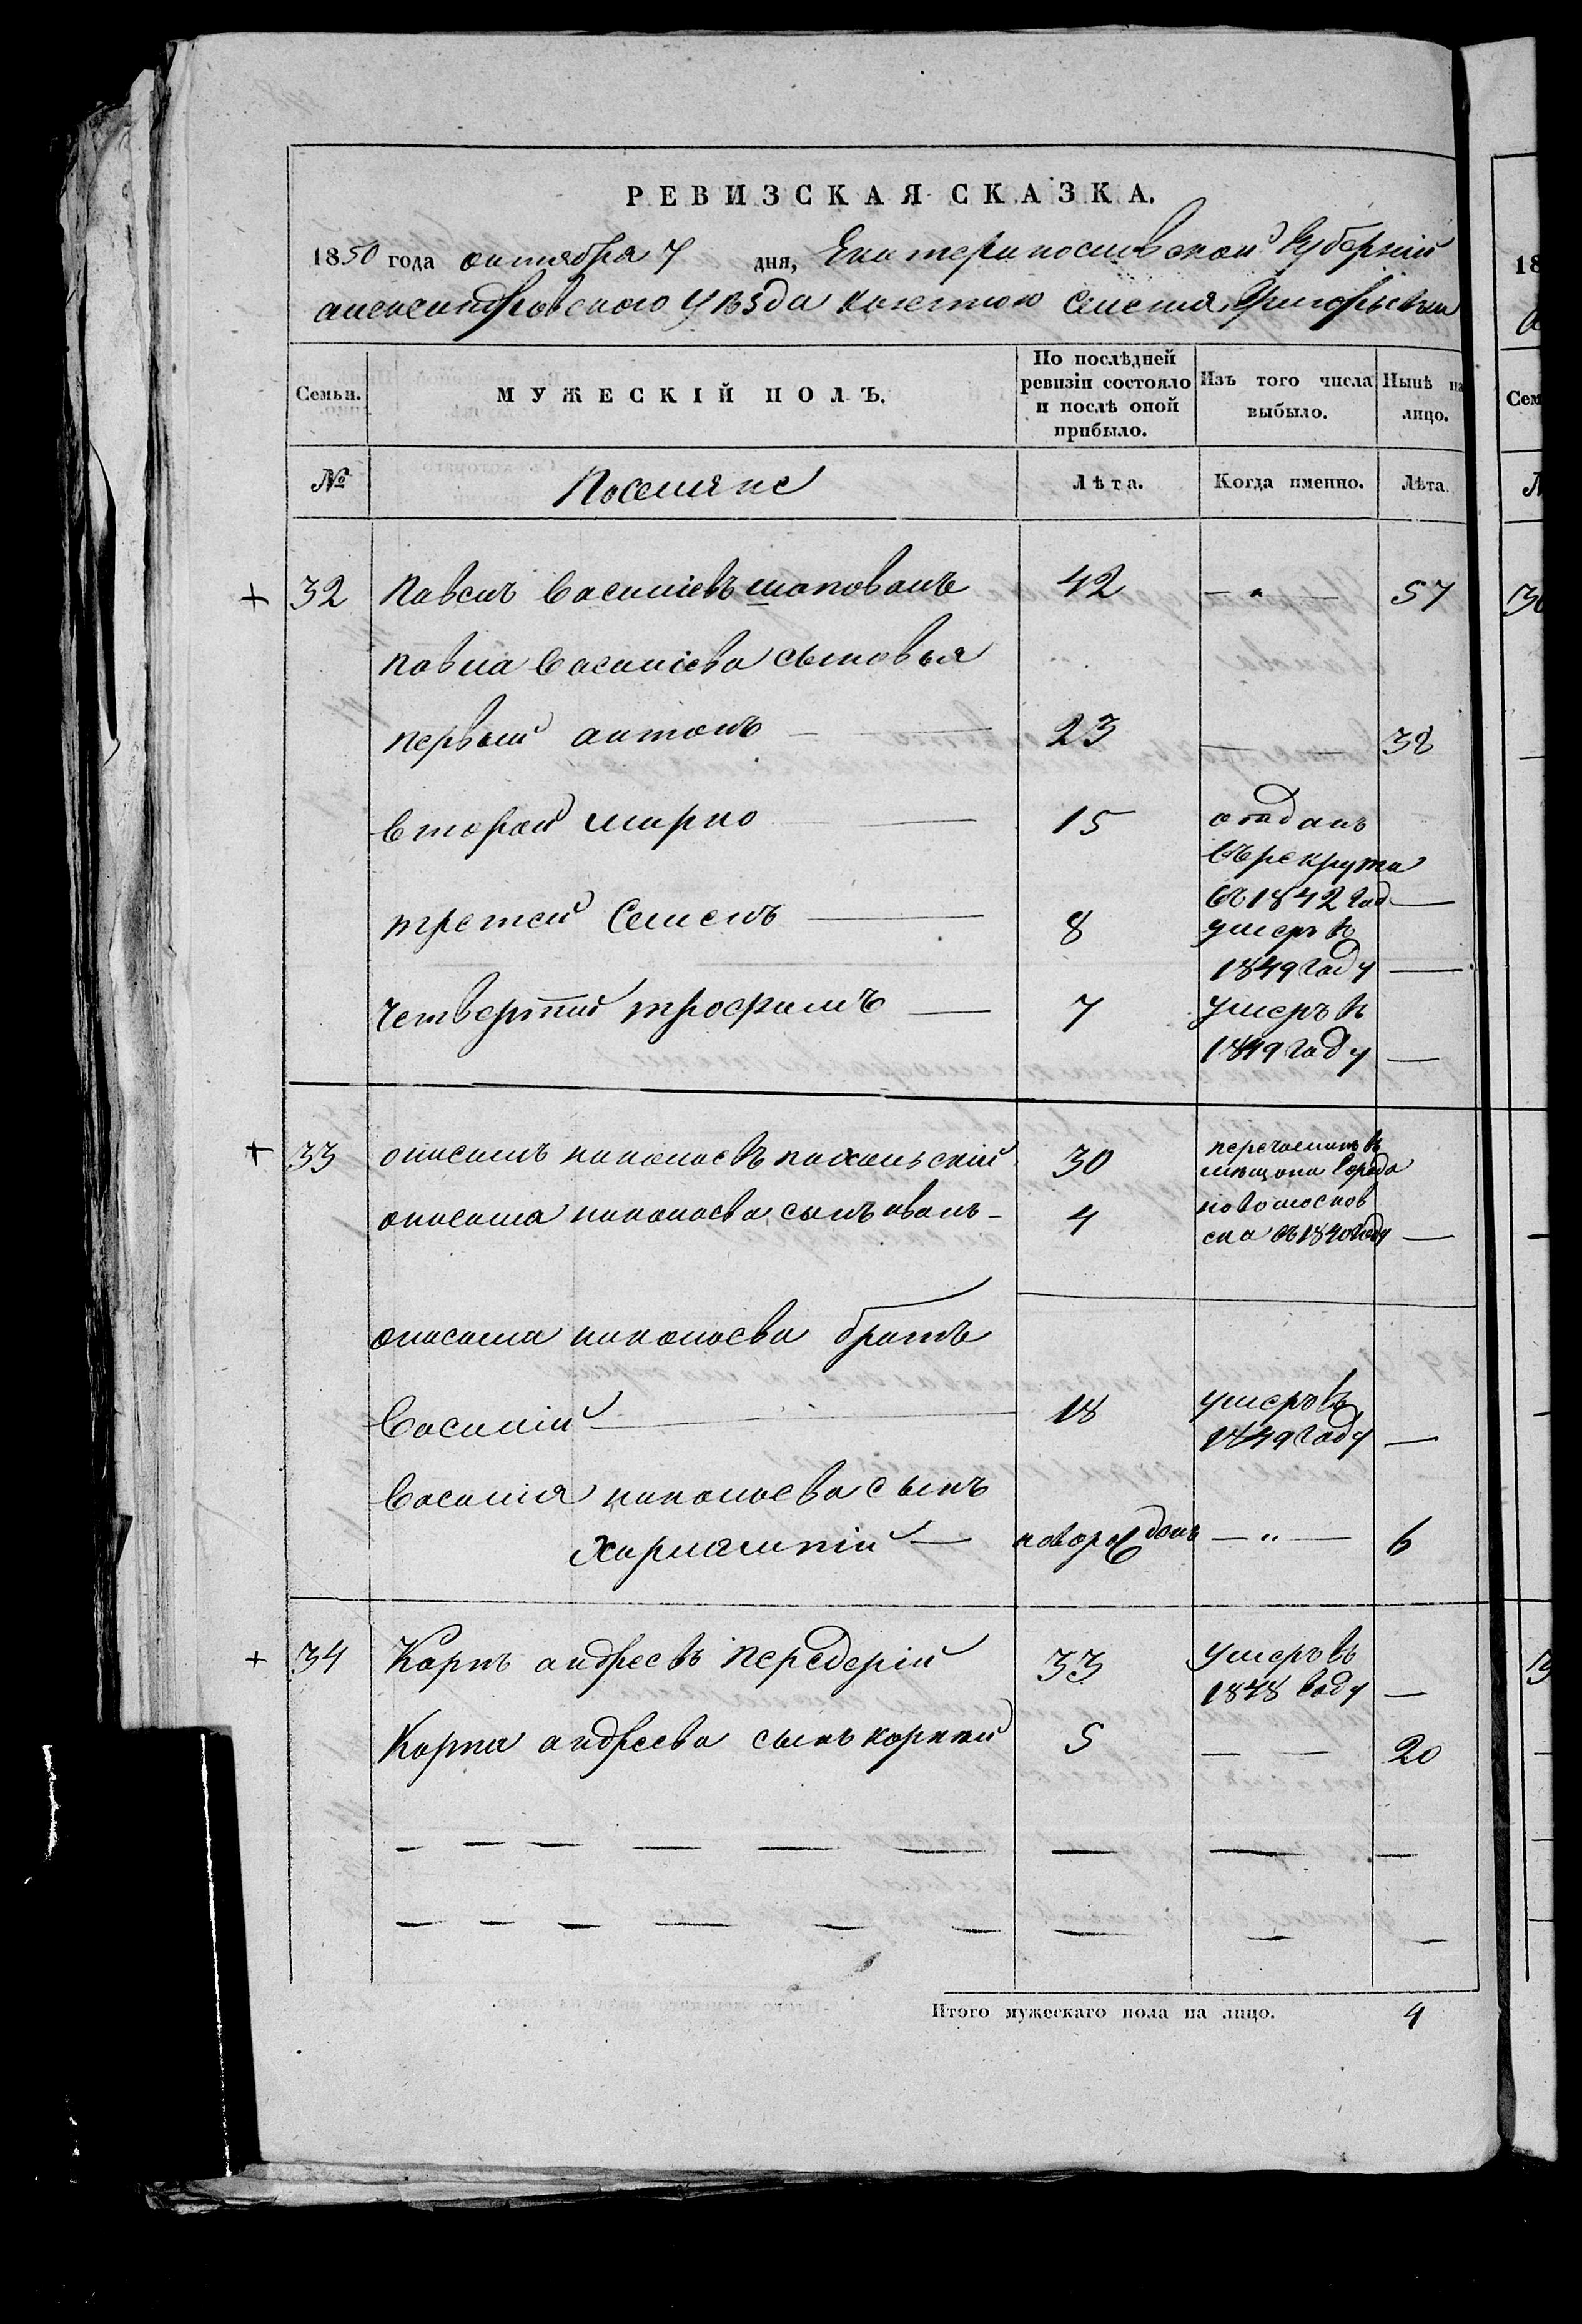 РЕВИЗСКАЯ СКАЗКА.
1850 года октября 7 дня, Екатеринославской Губерніи
александровского уѣзда казенного селенія Григорьевки
Семьи. МУЖЕСКІЙ ПОЛЪ. По послѣдней ревизіи состояло и послѣ оной прибыло. Изъ того числа выбыло. Нынѣ на лицо.
№ Поселяне Лѣта. Когда именно. Лѣта.
32 Павелъ Василіевъ шаповалъ 42 — „ — 57
Павла Василіева сыновья
первый антонъ — 23 — — 38
второй марко — 15 отданъ
въ рекрута
въ 1842 год —
третей Семенъ — 8 умеръ в
1849 году —
четвертий трофимъ — 7 умеръ в
1849 году —
33 30 перечисленъ в
мещане города
сынъ иванъ - 4 новомосков
ска въ 1840 году —
братъ
Василій — 18 умеръ въ
1849 году —
Василія сынъ
Харлампій — новорожденъ — „ — 6
34 Карпъ андреевъ передерій 33 умеръ въ
1848 году —
Карпа андреева сынъ корнѣй 5 — — 20
Итого мужескаго пола на лицо. 4